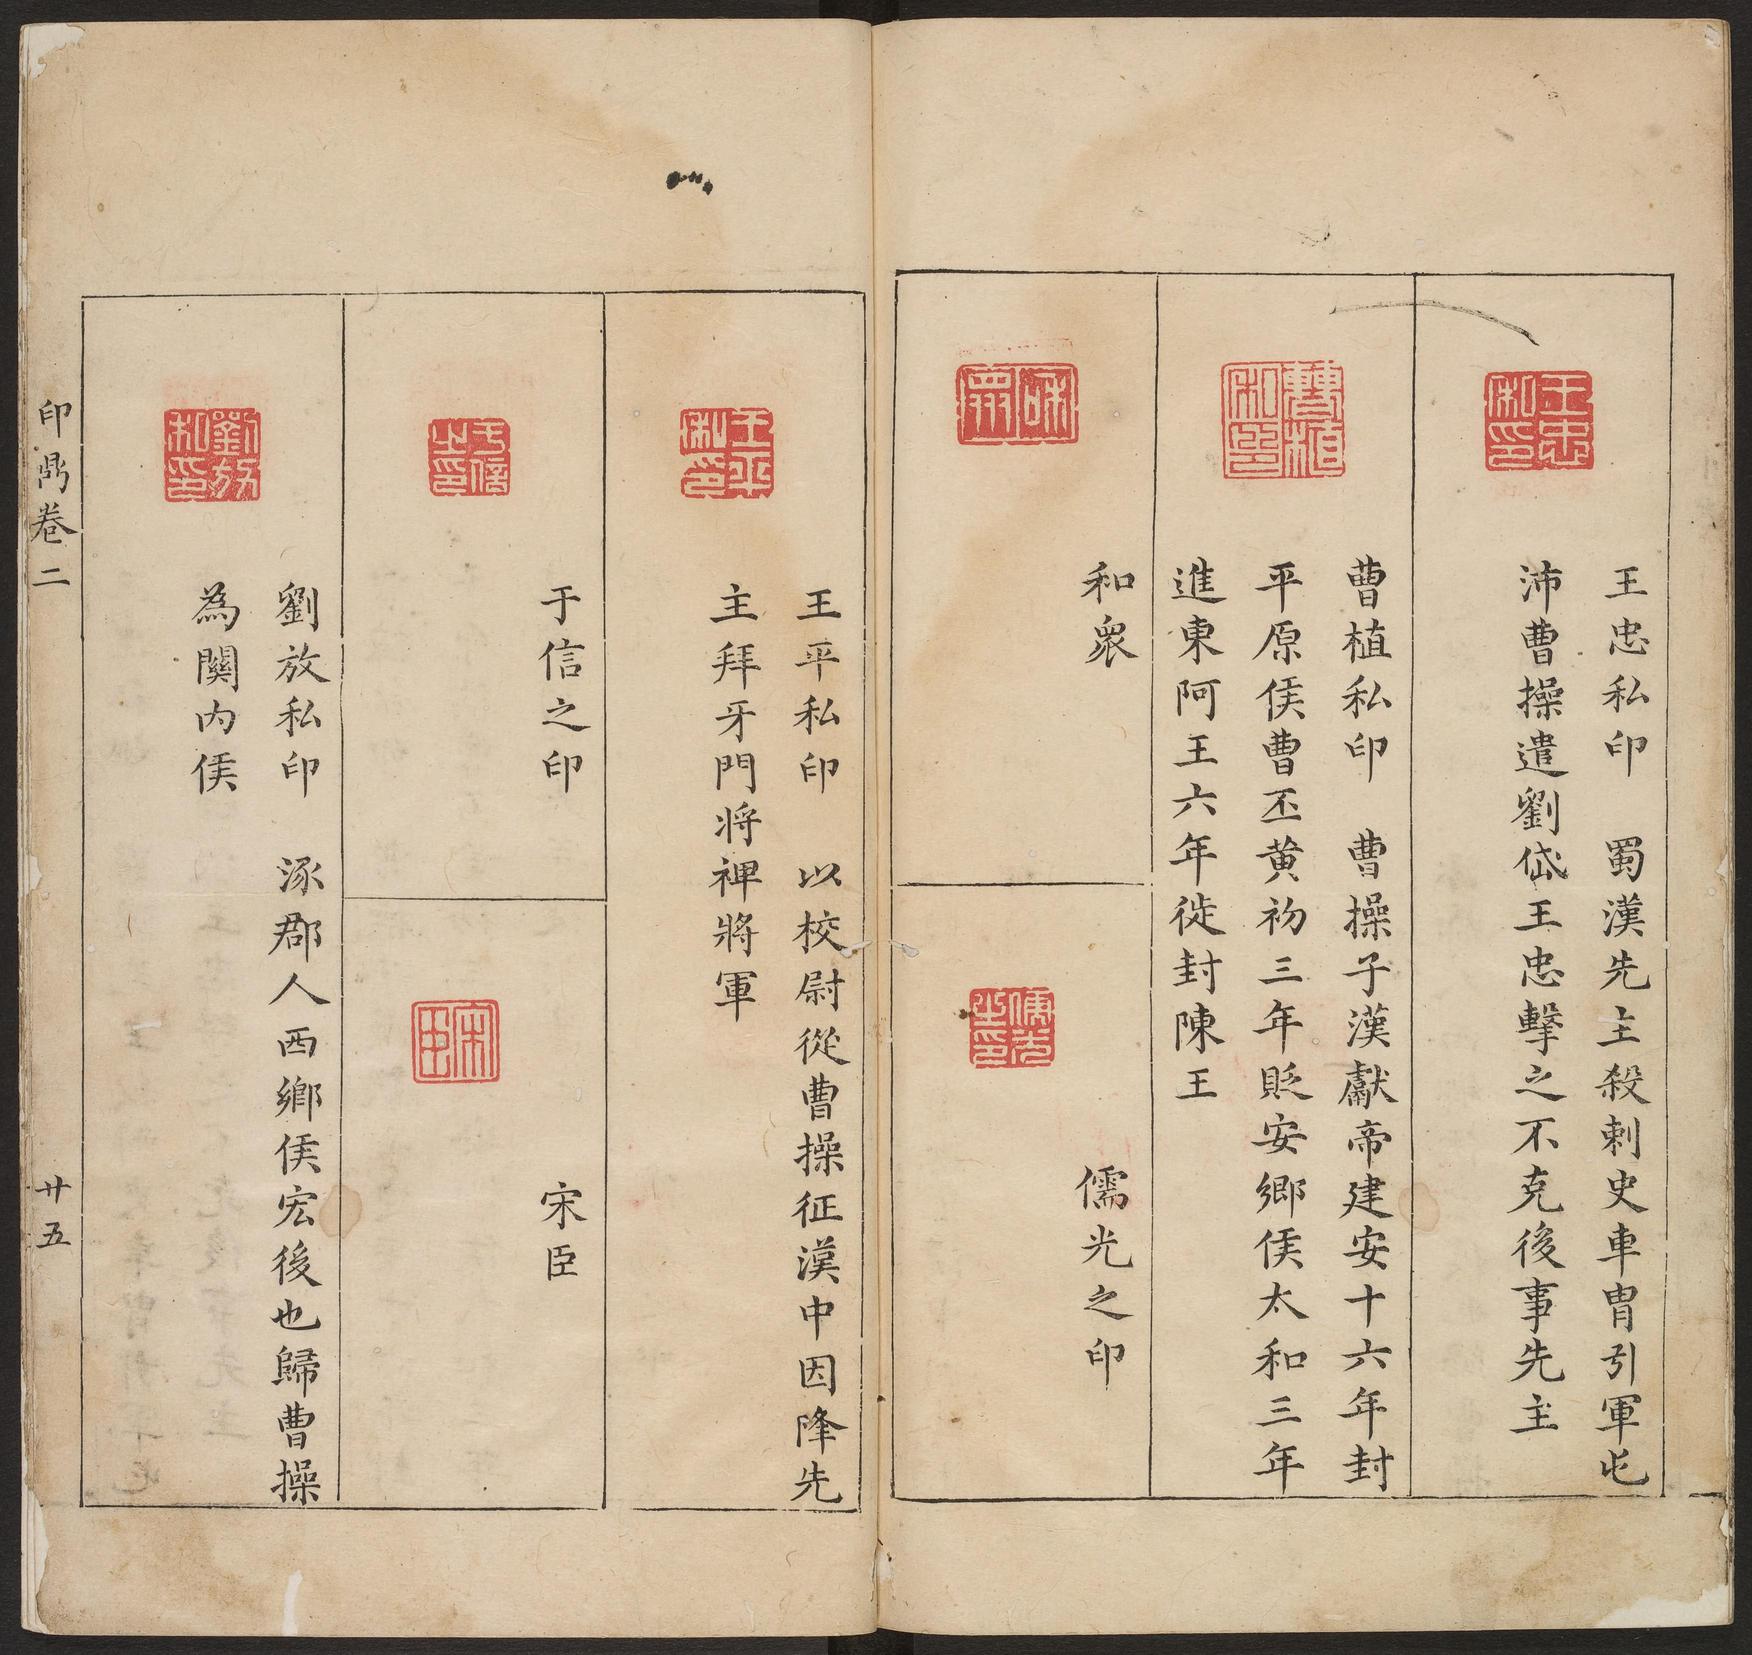 王忠私印
王忠私印　蜀漢先主殺刺史車胄引軍屯
沛曹操遣劉岱王忠擊之不克後事先主
曹植私印
曹植私印　曹操子漢獻帝建安十六年封
平原侯曹丕黄初三年貶安鄉侯太和三年
進東阿王六年徙封陳王
和眾
和衆
儒光之印
儒光之印
王平私印
王平私印　以校尉從曹操征漢中因降先
主拜牙門將裨將軍
于信之印
于信之印
宋臣
宋臣
劉放私印
劉放私印　涿郡人西鄉侯宏後也歸曹操
為關内侯
印鼎卷二
廿五